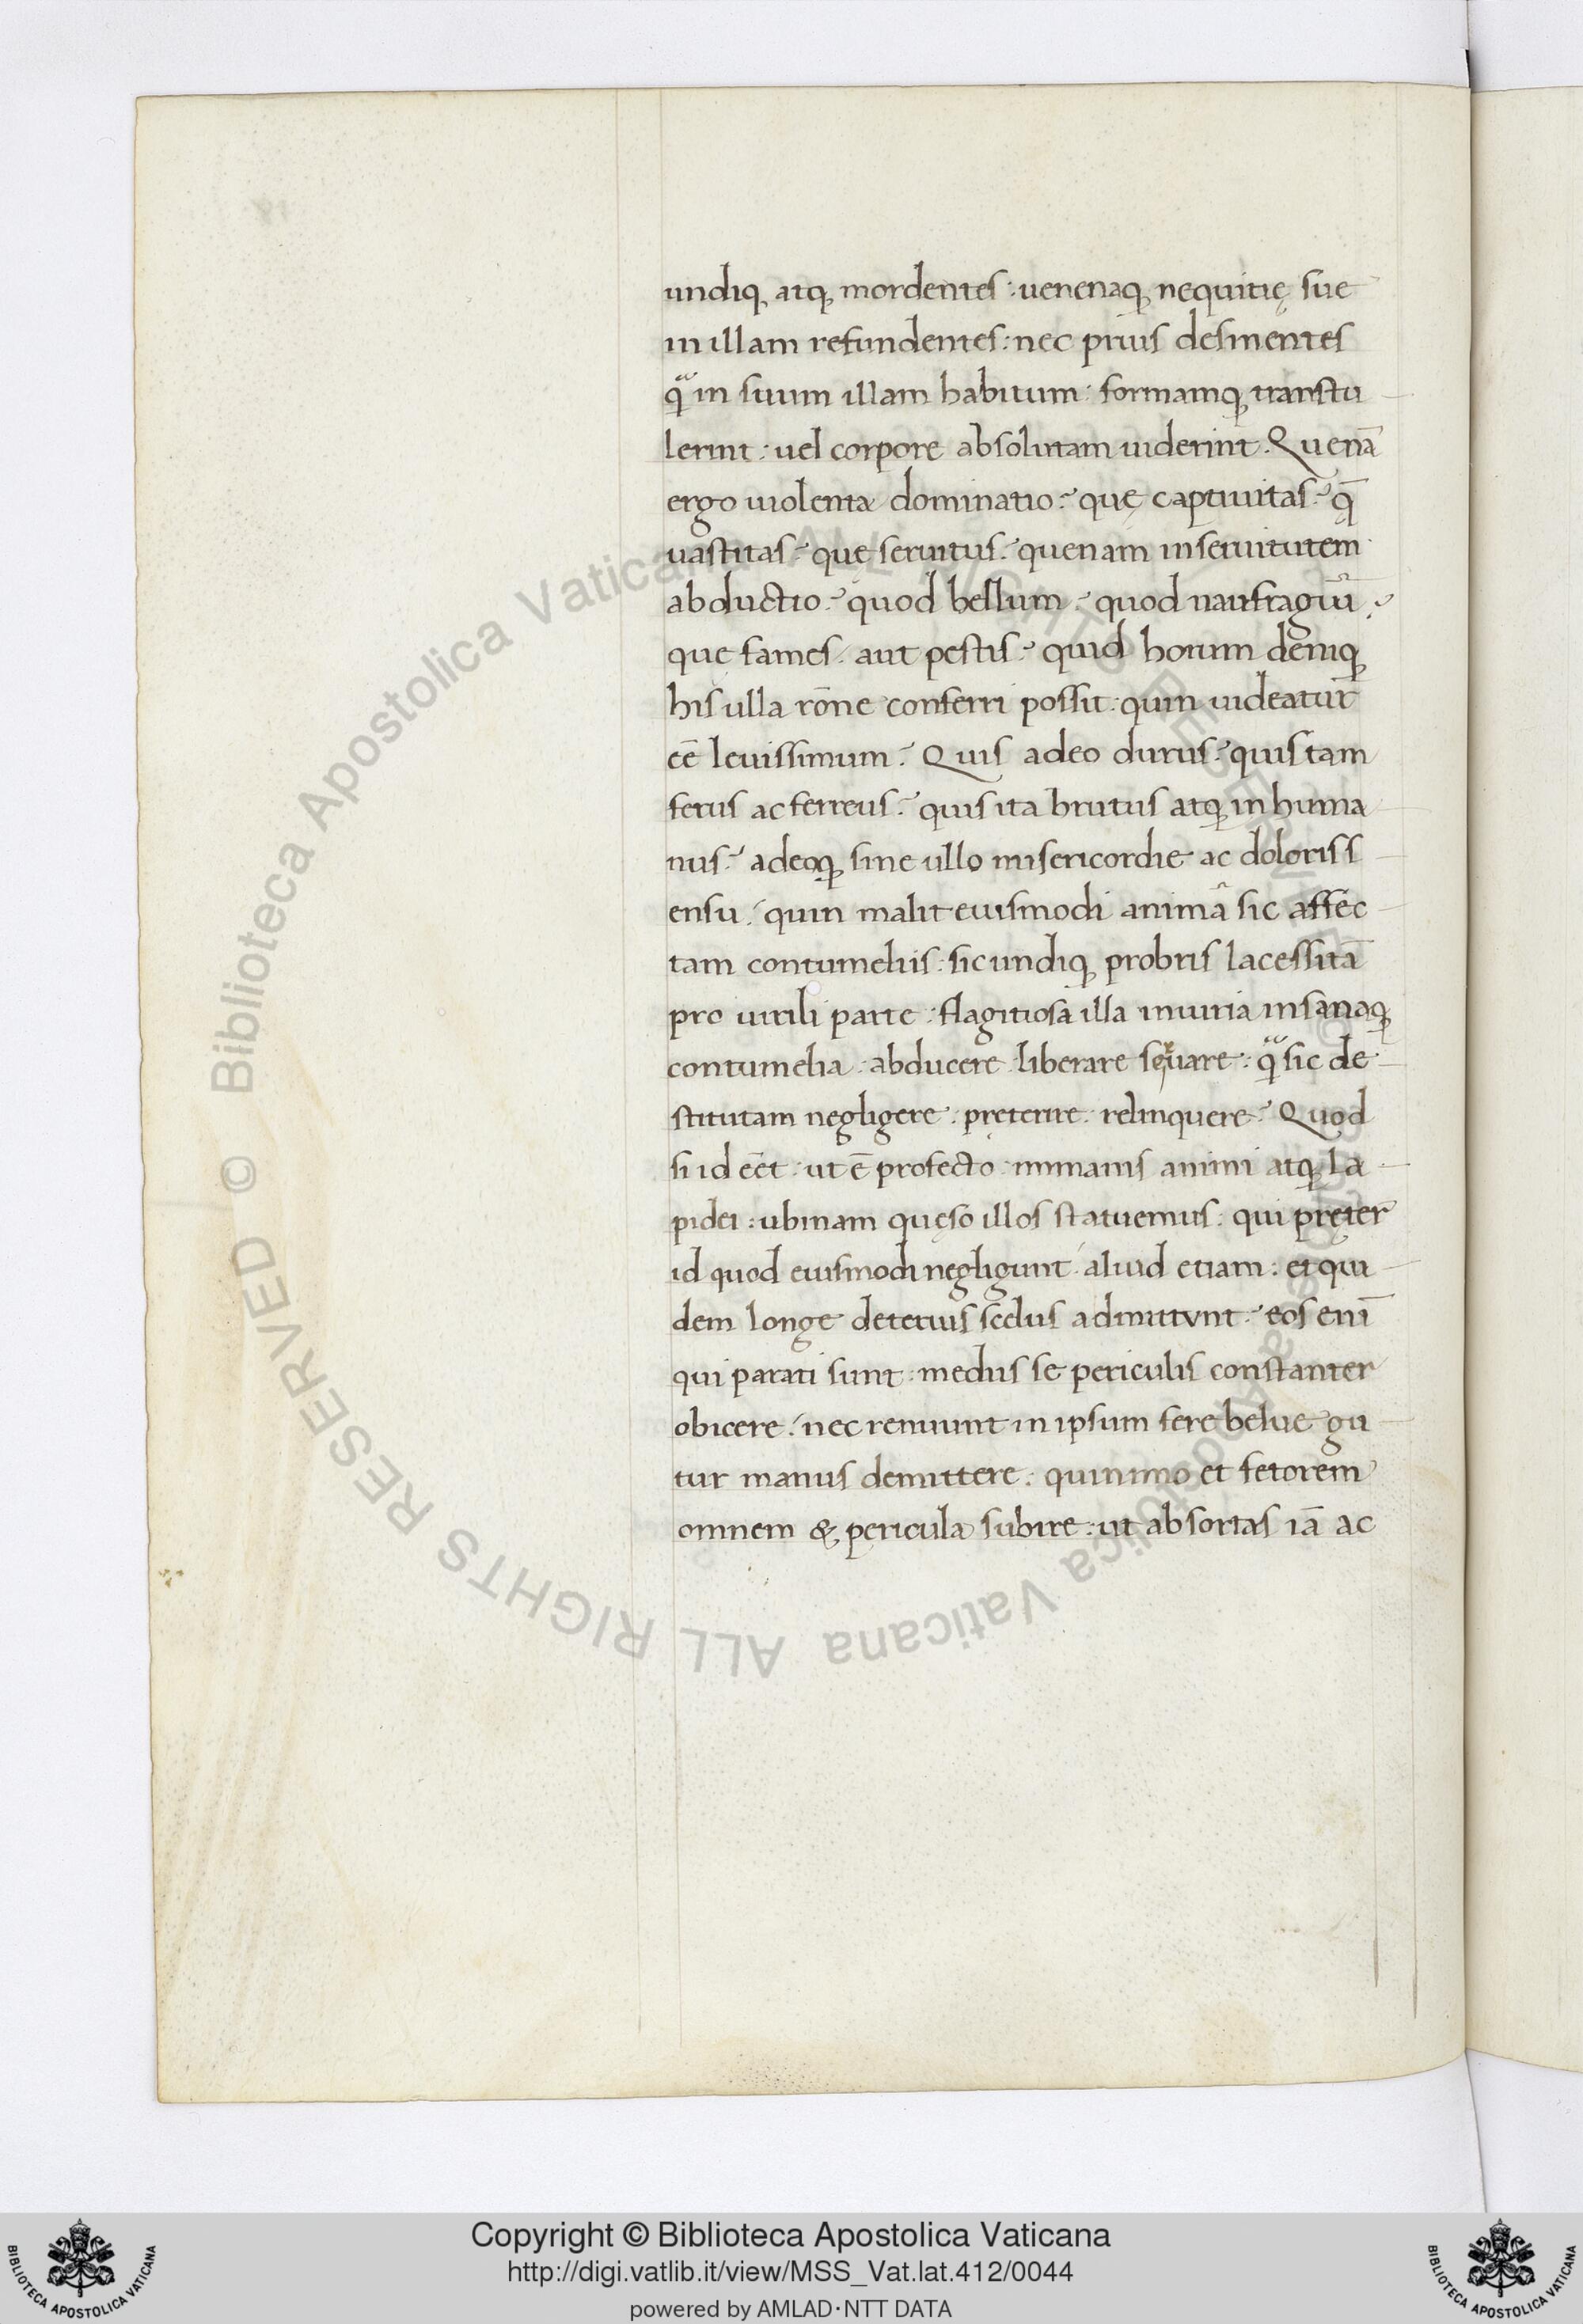 undiq; atq; mordentes: uenenaq; nequitię sue
in illam refundentes: nec prius desinentes
q̃ in suum illam habitum: formamq; transtu
lerint: uel corpore absolutam uiderint. Quenā
ergo uiolenta dominatio? quę captiuitas? q̄
uastitas? quę seruitus? quenam in seruitutem
abductio? quod bellum? quod naufragiū?
quę fames aut pestis? quid horum deniq;
his ulla rōne conferri possit: quin uideatur
eē leuissimum? Quis adeo durus? quis tam
ferus ac ferreus? quis ita brutus atq; inhuma
nus? adeoq; sine ullo misericordie ac doloris s
ensu? quin malit euismodi animā sic affec
tam contumeliis: sic undiq; probris lacessitā
pro uirili parte: flagitiosa illa iniuria insanaq;
contumelia: abducere liberare seruare: q̃ sic de
stitutam negligere: pręterire: relinquere? Quod
si id eēt: ut ē profecto: immanis animi atq; la
pidei: ubinam quęso illos statuemus: qui pręter
id quod euismodi negligunt: aliud etiam: et qui
dem longe deterius scelus admittunt? eos enī
qui parati sunt: mediis se periculis constanter
obicere: nec renuunt in ipsum fere belue gu
tur manus demittere: quinimo et fetorem
omnem & pericula subire: ut absortas iā ac
© Biblioteca Apostolica Vaticana ALL RIGHTS RESERVED
© Biblioteca Apostolica Vaticana ALL RIGHTS RESERVED
Copyright © Biblioteca Apostolica Vaticana
http://digi.vatlib.it/view/MSS_Vat.lat.412/0044
powered by AMLAD·NTT DATA
BIBLIOTECA APOSTOLICA VATICANA
BIBLIOTECA APOSTOLICA VATICANA